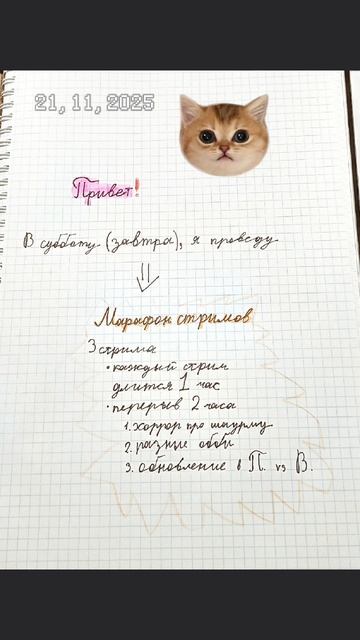 21, 11, 2025
Привет!
В субботу (завтра), я проведу
Марафон стримов
3 стрима
• каждый стрим
длится 1 час
• перерыв 2 часа
1. хоррор про шаурму
2. разные обби
3. обновление в П. vs В.